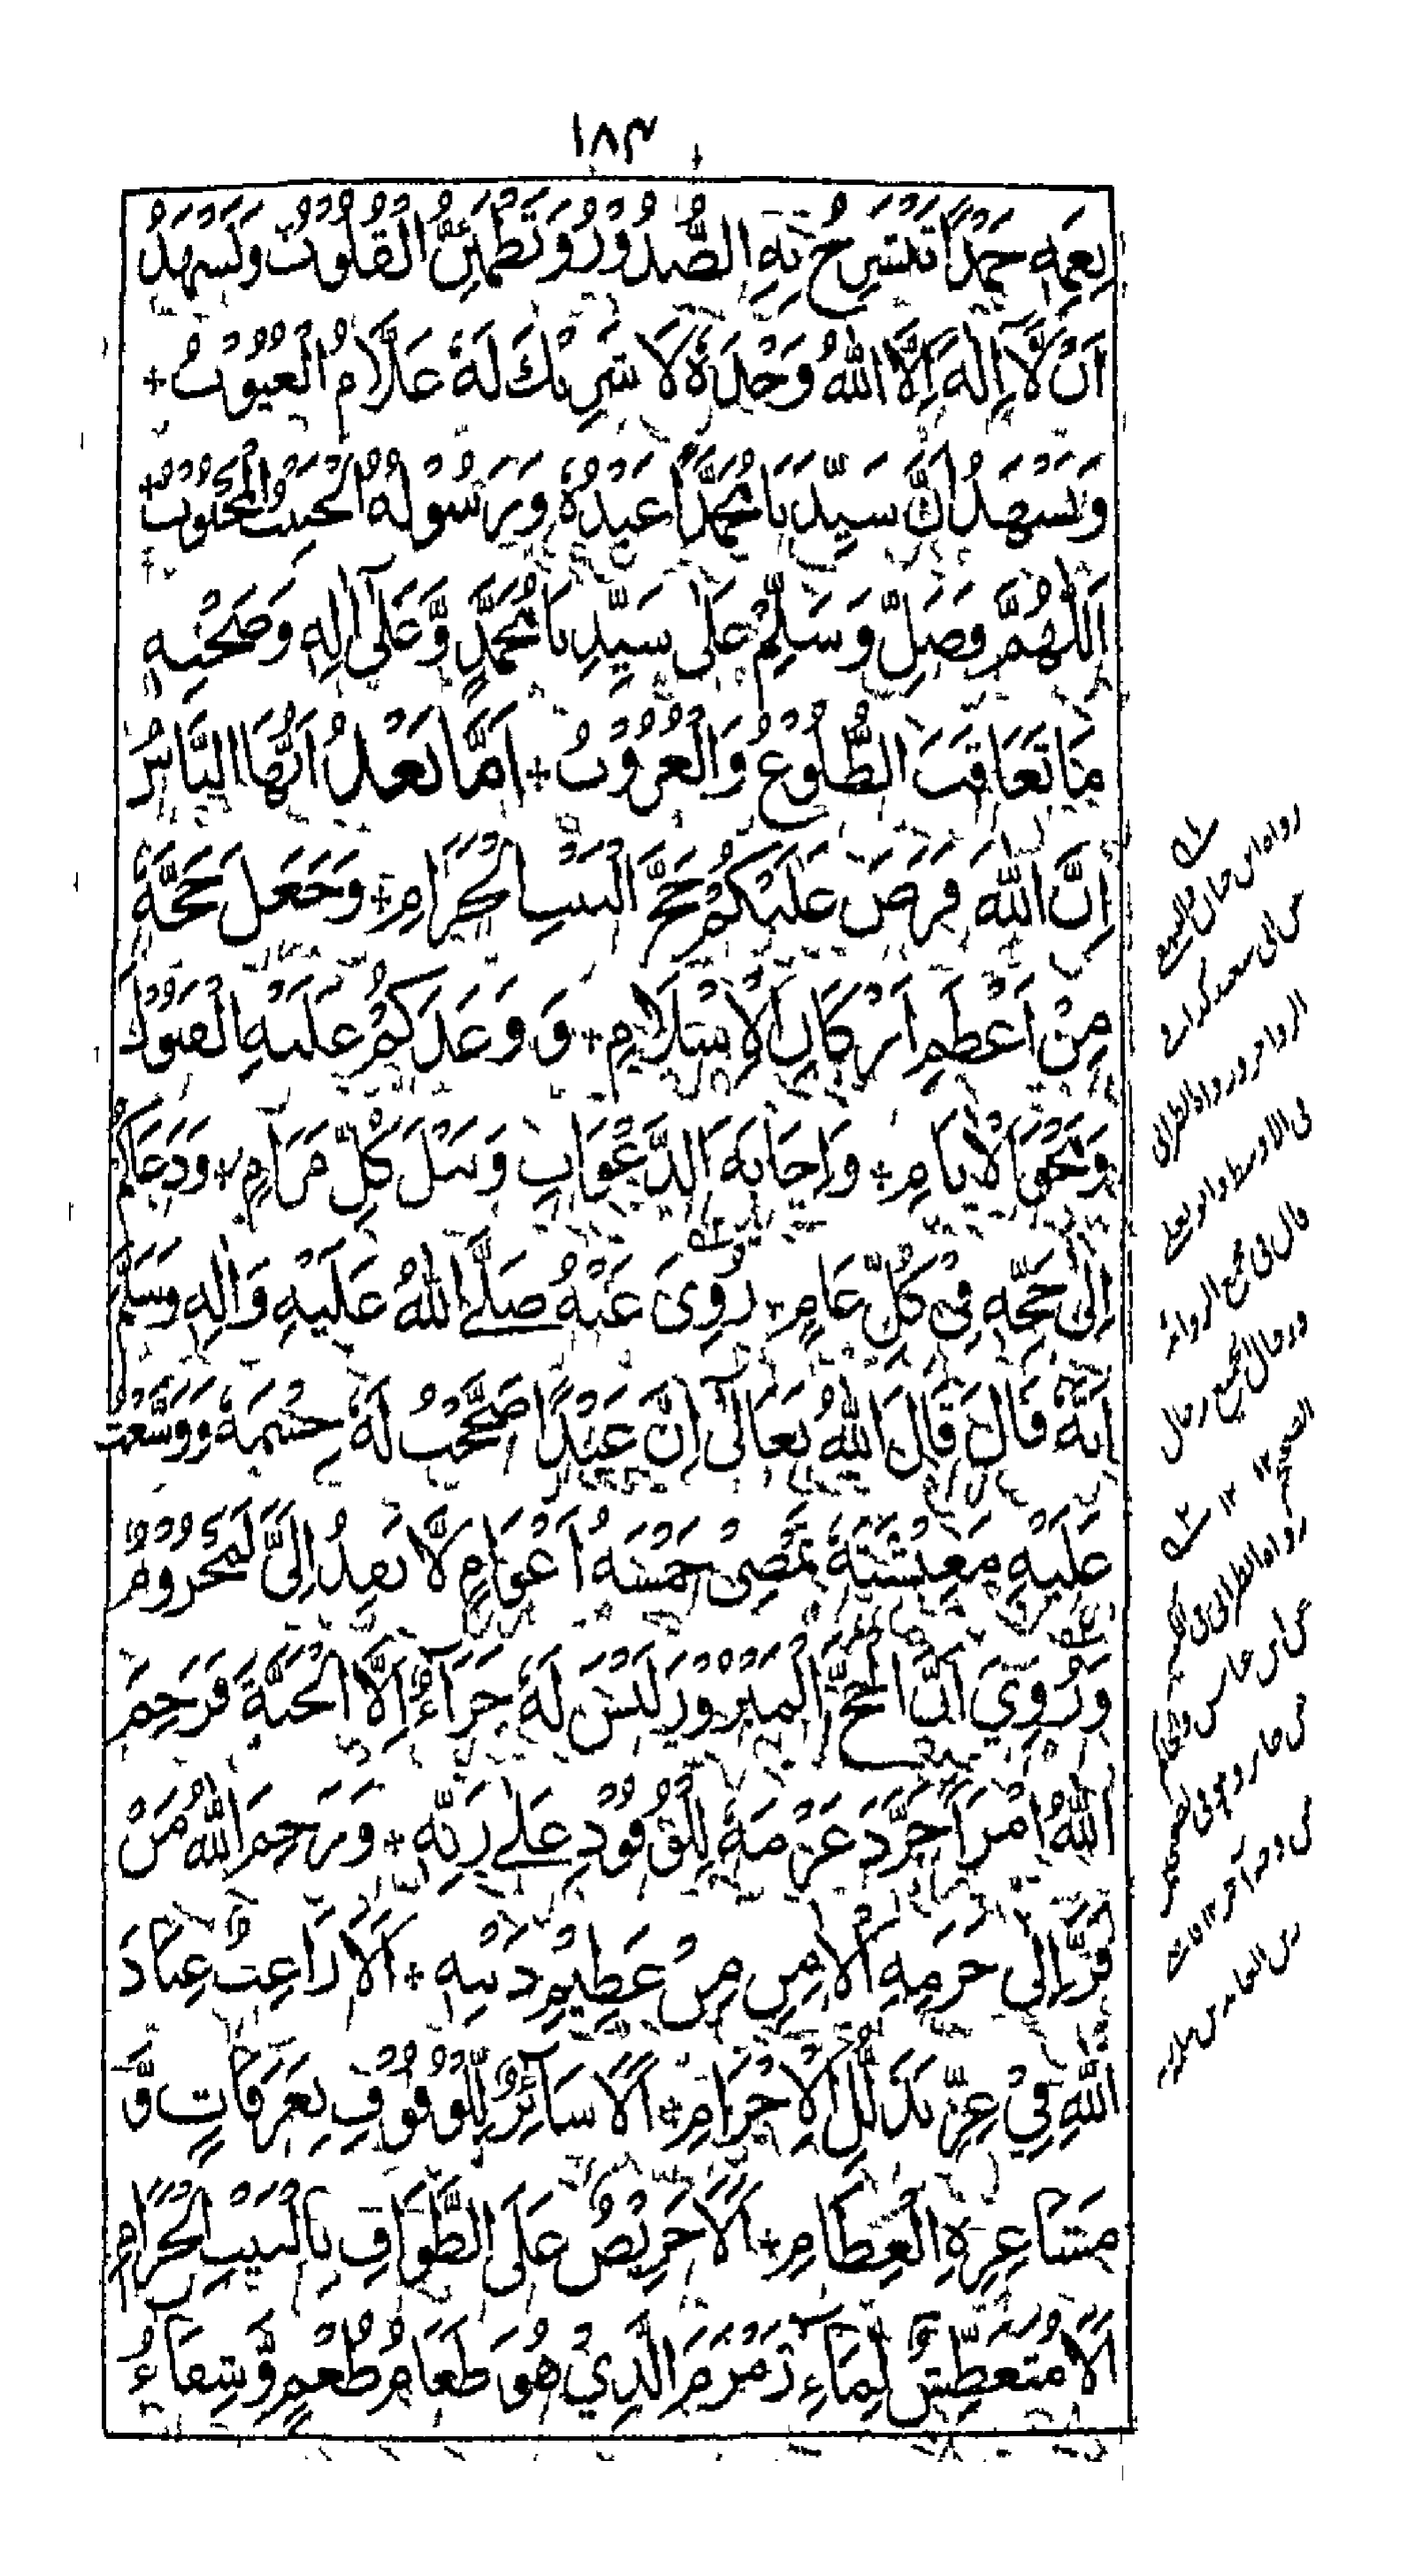 ١٨٣
نِعَمِهٖ حَمْدًا تَنْشَرِحُ بِهِ الصُّدُوْرُ وَتَطْمَئِنُّ الْقُلُوْبُ وَنَشْهَدُ
اَنْ لَّا اِلٰهَ اِلَّا اللّٰهُ وَحْدَهٗ لَا شَرِيْكَ لَهٗ عَلَّامُ الْغُيُوْبُ +
وَنَشْهَدُ اَنَّ سَيِّدَنَا مُحَمَّدًا عَبْدُهٗ وَرَسُوْلُهُ الْحَبِيْبُ الْمَحْبُوْبُ +
اَللّٰهُمَّ فَصَلِّ وَسَلِّمْ عَلٰى سَيِّدِنَا مُحَمَّدٍ وَّعَلٰٓى اٰلِهٖ وَصَحْبِهٖ
مَا تَعَاقَبَ الطُّلُوْعُ وَالْغُرُوْبُ + اَمَّا بَعْدُ اَيُّهَا النَّاسُ
اِنَّ اللّٰهَ فَرَضَ عَلَيْكُمْ حَجَّ الْبَيْتِ الْحَرَامِ + وَجَعَلَ حَجَّهٗ
مِنْ اَعْظَمِ اَرْكَانِ الْاِسْلَامِ + وَوَعَدَكُمْ عَلَيْهِ الْفَوْزَ
وَمَحْوَ الْاٰثَامِ + وَاِجَابَةَ الدَّعْوَاتِ وَنَيْلَ كُلِّ مَرَامٍ + وَدَعَاكُمْ
اِلٰى حَجِّهٖ فِيْ كُلِّ عَامٍ + رُوِيَ عَنْهُ صَلَّى اللّٰهُ عَلَيْهِ وَاٰلِهٖ وَسَلَّمَ
اَنَّهٗ قَالَ قَالَ اللّٰهُ تَعَالٰٓى اِنَّ عَبْدًا صَحَّحْتُ لَهٗ جِسْمَهٗ وَوَسَّعْتُ
عَلَيْهِ مَعِيْشَتَهٗ تَمْضِيْ خَمْسَةُ اَعْوَامٍ لَّا يَفِدُ اِلَيَّ لَمَحْرُوْمٌ
وَرُوِيَ اَنَّ الْحَجَّ الْمَبْرُوْرَ لَيْسَ لَهٗ جَزَآءٌ اِلَّا الْجَنَّةَ فَرَحِمَ
اللّٰهُ امْرَأً جَرَّدَ عَزْمَهٗ لِلْوُفُوْدِ عَلٰى رَبِّهٖ + وَرَحِمَ اللّٰهُ مَنْ
فَرَّ اِلٰى حَرَمِهِ الْاٰمِنِ مِنْ عَظِيْمِ ذَنْبِهٖ + اَلَا رَاغِبٌ عِبَادَ
اللّٰهِ فِيْ عِزِّ تَذَلُّلِ الْاِحْرَامِ + اَلَا سَآئِرٌ لِّلْوُقُوْفِ بِعَرَفَاتٍ وَّ
مَشَاعِرِهِ الْعِظَامِ + اَلَا حَرِيْصٌ عَلَى الطَّوَافِ بِالْبَيْتِ الْحَرَامِ
اَلَا مُتَعَطِّشٌ لِّمَاءِ زَمْزَمَ الَّذِيْ هُوَ طَعَامُ طُعْمٍ وَّشِفَاءُ
رواه ابن حبان والبيهقي
عن ابي سعيد كذا في
الزواجر ورواه الطبراني
في الاوسط وابو يعلى
قال في مجمع الزوائد
ورجال الجميع رجال
الصحيح ١٢
رواه الطبراني في الكبير
عن ابن عباس